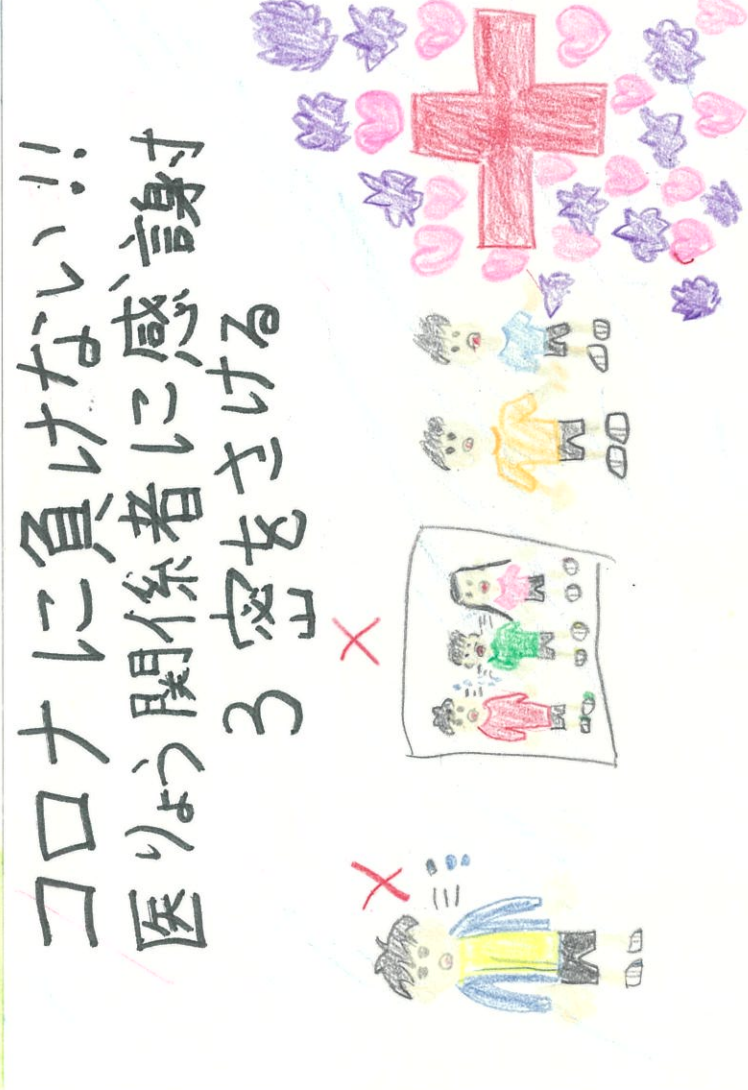 コロナに負けない!!
医りょう関係者に感謝
3密をさける